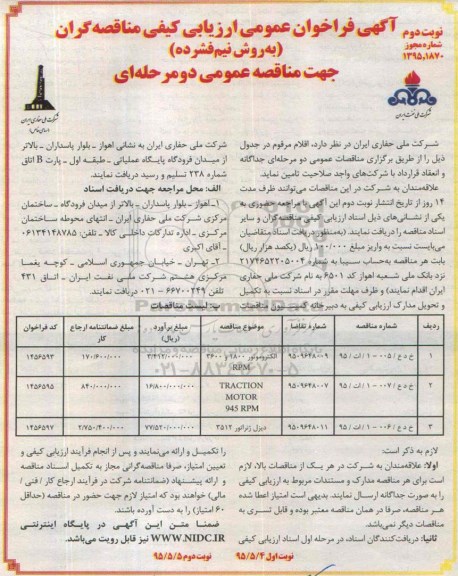 آگهی فراخوان عمومی ارزیابی کیفی مناقصه‌گران
(به‌روش نیم‌فشرده)
جهت مناقصه عمومی دو مرحله‌ای
نوبت دوم
شماره مجوز
۱۳۹۵,۱۸۷۰
شرکت ملی نفت ایران
شرکت ملی حفاری ایران
(سهامی خاص)
شرکت ملی حفاری ایران در نظر دارد، اقلام مرقوم در جدول
ذیل را از طریق برگزاری مناقصات عمومی دو مرحله‌ای جداگانه
و انعقاد قرارداد با شرکت‌های واجد صلاحیت تامین نماید.
علاقه‌مندان به شرکت در این مناقصات می‌توانند ظرف مدت
۱۴ روز از تاریخ انتشار نوبت دوم این آگهی با مراجعه حضوری به
یکی از نشانی‌های ذیل اسناد ارزیابی کیفی مناقصه‌گران و سایر
اسناد مناقصه را دریافت نمایند. (به‌منظور دریافت اسناد متقاضیان
می‌بایست نسبت به واریز مبلغ ۱۰۰/۰۰۰ ریال (یکصد هزار ریال)
بابت هر مناقصه به‌حساب سیبا به شماره ۲۱۷۴۶۵۲۲۰۵۰۰۴
نزد بانک ملی شعبه اهواز کد ۶۵۰۱ به نام شرکت ملی حفاری
ایران اقدام نمایند) و ظرف مهلت مقرر در اسناد نسبت به تکمیل
و تحویل مدارک ارزیابی کیفی به دبیرخانه کمیسیون مناقصات
شرکت ملی حفاری ایران به نشانی اهواز ـ بلوار پاسداران ـ بالاتر
از میدان فرودگاه پایگاه عملیاتی ـ طبقه اول ـ پارت B اتاق
شماره ۲۳۸ تسلیم و رسید دریافت نمایند.
الف: محل مراجعه جهت دریافت اسناد
۱-اهواز ـ بلوار پاسداران ـ بالاتر از میدان فرودگاه ـ ساختمان
مرکزی شرکت ملی حفاری ایران ـ انتهای محوطه ساختمان
مرکزی ـ اداره تدارکات داخلی کالا ـ تلفن: ۰۶۱۳۴۱۴۸۷۸۵
ـ آقای اکبری
۲- تهران ـ خیابان جمهوری اسلامی ـ کوچه یغما
مرکزی هشتم شرکت ملی نفت ایران ـ اتاق ۴۳۱
تلفن ۶۶۷۰۰۲۴۹ - ۰۲۱ دریافت نمایند.
ب: لیست مناقصات
ردیف شماره مناقصه شماره تقاضا موضوع مناقصه مبلغ برآورد (ریال) مبلغ ضمانتنامه ارجاع کار کد فراخوان
۱ ح د ع / ۰۰۵ - ۱ / ات / ۹۵ ۹۵۰۹۶۴۸۰۰۹ الکتروموتور ۱۸۰۰ و ۳۶۰۰ RPM ۳/۴۱۲/۰۰۰/۰۰۰ ۱۷۰/۶۰۰/۰۰۰ ۱۲۵۶۵۹۳
۲ ح د ع / ۰۰۷ - ۱ / ات / ۹۵ ۹۵۰۹۶۴۸۰۰۷ TRACTION MOTOR 945 RPM ۱۶/۸۰۰/۰۰۰/۰۰۰ ۸۴۰/۰۰۰/۰۰۰ ۱۲۵۶۵۹۵
۳ ح د ع / ۰۰۶ - ۱ / ات / ۹۵ ۹۵۰۹۶۴۸۰۱۱ دیزل ژنراتور ۳۵۱۲ ۷۷/۵۲۰/۰۰۰/۰۰۰ ۲/۷۵۰/۴۰۰/۰۰۰ ۱۲۵۶۵۹۷
لازم به ذکر است:
اولا: علاقه‌مندان به شرکت در هر یک از مناقصات بالا، لازم
است برای هر مناقصه مدارک و مستندات مربوط به ارزیابی کیفی
را به صورت جداگانه ارسال نمایند. بدیهی است امتیاز اعطا شده
هر مناقصه، صرفا در همان مناقصه معتبر بوده و قابل تسری به
مناقصات دیگر نمی‌باشد.
ثانیا: دریافت‌کنندگان اسناد، در مرحله اول اسناد ارزیابی کیفی
را تکمیل و ارائه می‌نمایند و پس از انجام فرآیند ارزیابی کیفی و
تعیین امتیاز، صرفا مناقصه‌گرانی مجاز به تکمیل اسناد مناقصه
و ارائه پیشنهاد (ضمانتنامه شرکت در فرآیند ارجاع کار / فنی /
مالی) خواهند بود که امتیاز لازم جهت حضور در مناقصه (حداقل
۶۰ امتیاز) را به دست آورده باشند.
ضمنا متن این آگهی در پایگاه اینترنتی
WWW.NIDC.IR نیز قابل رویت می‌باشد.
نوبت اول ۹۵/۵/۴ نوبت دوم ۹۵/۵/۵
ParsNamadData
۰۲۱-۸۸۳۴۹۶۷۰-۵